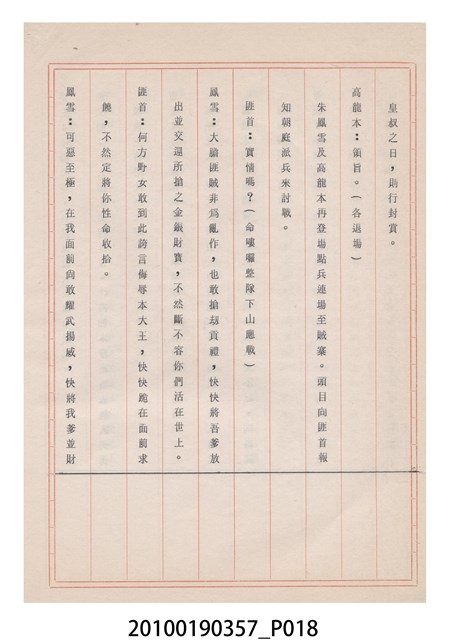 皇叔之日，則行封賞。
高龍本：領旨。(各退場)
朱鳳雪及高龍本再登場點兵連場至賊寨。頭目向匪首報
知朝庭派兵來討戰。
匪首：實情嗎？(命嘍囉整隊下山應戰)
鳳雪：大膽匪賊非爲亂作，也敢搶劫貢禮，快快將吾爹放
出並交還所搶之金銀財寶，不然斷不容你們活在世上。
匪首：何方野女敢到此誇言侮辱本大王，快快跪在面前求
饒，不然定將你性命收拾。
鳳雪：可惡至極，在我面前尚敢耀武揚威，快將我爹並財
20100190357_P018